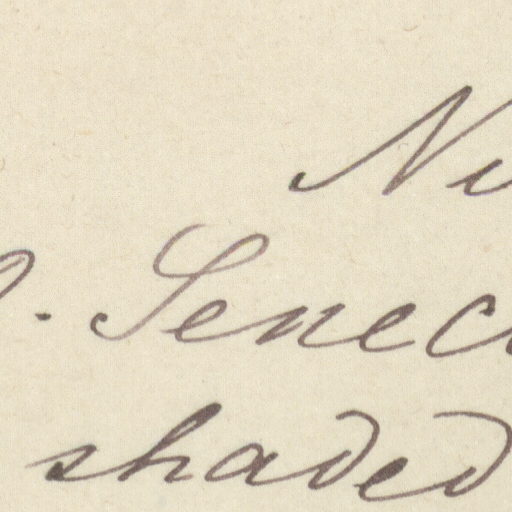 Ni
. Senec
shaded